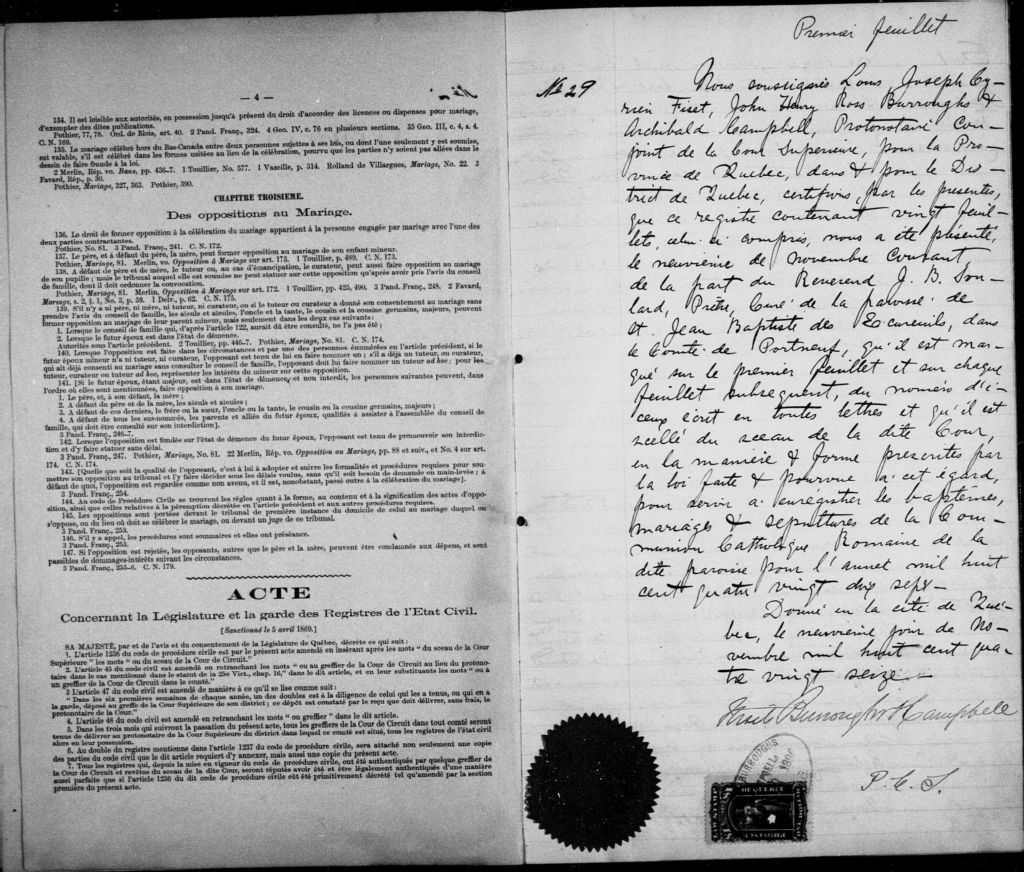 — 4 —
134. Il est loisible aux autorités, en possession jusqu'à présent du droit d'accorder des licences ou dispenses pour mariage,
d'exempter des dites publications.
Pothier, 77, 78. Ord. de Blois, art. 40. 2 Pand. Franç., 324. 4 Geo. IV, c. 76 en plusieurs sections. 35 Geo. III, c. 4, s. 4.
C. N. 169.
135. Le mariage célébré hors du Bas-Canada entre deux personnes sujettes à ses lois, ou dont l'une seulement y est soumise,
est valable, s'il est célébré dans les formes usitées au lieu de la célébration, pourvu que les parties n'y soient pas allées dans le
dessin de faire fraude à la loi.
2 Merlin, Rép. vo. Bans, pp. 436-7. 1 Touillier, No. 577. 1 Vazeille, p. 314. Rolland de Villargues, Mariage, No. 22. 3
Favard, Rép., p. 30.
Pothier, Mariage, 327, 363. Pothier, 390.
CHAPITRE TROISIEME.
Des oppositions au Mariage.
136. Le droit de former opposition à la célébration du mariage appartient à la personne engagée par mariage avec l'une des
deux parties contractantes.
Pothier, No. 81. 3 Pand. Franç., 241. C. N. 172.
137. Le père, et à défaut du père, la mère, peut former opposition au mariage de son enfant mineur.
Pothier, Mariage, 81. Merlin, vo. Opposition à Mariage sur art. 173. 1 Touillier, p. 489. C. N. 173.
138. A défaut de père et de mère, le tuteur ou, au cas d'émancipation, le curateur, peut aussi faire opposition au mariage
de son pupille ; mais le tribunal auquel elle est soumise ne peut statuer sur cette opposition qu'après avoir pris l'avis du conseil
de famille, dont il doit ordonner la convocation.
Pothier, Mariage, 81. Merlin, Opposition à Mariage sur art. 172. 1 Touillier, pp. 425, 490. 3 Pand. Franç., 248. 2 Favard,
Mariage, s. 2, § 1, No. 3, p. 59. 1 Delv., p. 62. C. N. 175.
139. S'il n'y a ni père, ni mère, ni tuteur, ni curateur, ou si le tuteur ou curateur a donné son consentement au mariage sans
prendre l'avis du conseil de famille, les aïeuls et aïeules, l'oncle et la tante, le cousin et la cousine germains, majeurs, peuvent
former opposition au mariage de leur parent mineur, mais seulement dans les deux cas suivants :
1. Lorsque le conseil de famille qui, d'après l'article 122, aurait dû être consulté, ne l'a pas été ;
2. Lorsque le futur époux est dans l'état de démence.
Autorités sous l'article précédent. 2 Touillier, pp. 446-7. Pothier, Mariage, No. 81. C. N. 174.
140. Lorsque l'opposition est faite dans les circonstances et par une des personnes énumérées en l'article précédent, si le
futur époux mineur n'a ni tuteur, ni curateur, l'opposant est tenu de lui en faire nommer un ; s'il a déjà un tuteur, ou curateur,
qui ait déjà consenti au mariage sans consulter le conseil de famille, l'opposant doit lui faire nommer un tuteur ad hoc ; pour les
tuteur, curateur ou tuteur ad hoc, représenter les intérêts du mineur sur cette opposition.
141. [Si le futur époux, étant majeur, est dans l'état de démence et non interdit, les personnes suivantes peuvent, dans
l'ordre où elles sont mentionnées, faire opposition à son mariage.
1. Le père, et, à son défaut, la mère ;
2. A défaut du père et de la mère, les aïeuls et aïeules ;
3. A défaut de ces derniers, le frère ou la sœur, l'oncle ou la tante, le cousin ou la cousine germains, majeurs ;
4. A défaut de tous les sus-nommés, les parents et alliés du futur époux, qualifiés à assister à l'assemblée du conseil de
famille, qui doit être consulté sur son interdiction].
3 Pand. Franç., 246-7.
142. Lorsque l'opposition est fondée sur l'état de démence du futur époux, l'opposant est tenu de promouvoir son interdic-
tion et d'y faire statuer sans délai.
3 Pand. Franç., 247. Pothier, Mariage, No. 81. 22 Merlin, Rép. vo. Opposition au Mariage, pp. 88 et suiv., et No. 4 sur art.
174. C. N. 174.
143. [Quelle que soit la qualité de l'opposant, c'est à lui à adopter et suivre les formalités et procédures requises pour sou-
mettre son opposition au tribunal et l'y faire décider sous les délais voulus, sans qu'il soit besoin de demande en main-levée ; à
défaut de quoi, l'opposition est regardée comme non avenu, et il est, nonobstant, passé outre à la célébration du mariage].
3 Pand. Franç., 254.
144. Au code de Procédure Civile se trouvent les règles quant à la forme, au contenu et à la signification des actes d'oppo-
sition, ainsi que celles relatives à la péremption décrétée en l'article précédent et aux autres procédures requises.
145. Les oppositions sont portées devant le tribunal de première instance du domicile de celui au mariage duquel on
s'oppose, ou du lieu où doit se célébrer le mariage, ou devant un juge de ce tribunal.
3 Pand. Franç., 253.
146. S'il y a appel, les procédures sont sommaires et elles ont préséance.
3 Pand. Franç., 253.
147. Si l'opposition est rejetée, les opposants, autres que le père et la mère, peuvent être condamnés aux dépens, et sont
passibles de dommages-intérêts suivant les circonstances.
3 Pand. Franç., 255-6. C. N. 179.
ACTE
Concernant la Législature et la garde des Registres de l'Etat Civil.
[Sanctionné le 5 avril 1869.]
SA MAJESTÉ, par et de l'avis et du consentement de la Législature de Québec, décrète ce qui suit :
1. L'article 1236 du code de procédure civile est par le présent acte amendé en insérant après les mots " du sceau de la Cour
Supérieure " les mots " ou du sceau de la Cour de Circuit."
2. L'article 45 du code civil est amendé en retranchant les mots " ou au greffier de la Cour de Circuit au lieu du protono-
taire dans le cas mentionné dans le statut de la 25e Vict., chap. 16," dans le dit article, et en leur substituants les mots " ou à
un greffier de la Cour de Circuit dans le comté."
3 L'article 47 du code civil est amendé de manière à ce qu'il se lise comme suit :
" Dans les six premières semaines de chaque année, un des doubles est à la diligence de celui qui les a tenus, ou qui en a
la garde, déposé au greffe de la Cour Supérieure de son district ; ce dépôt est constaté par le reçu que doit délivrer, sans frais, le
protonotaire de la Cour."
4. L'article 48 du code civil est amendé en retranchant les mots " ou greffier " dans le dit article.
5. Dans les trois mois qui suivront la passation du présent acte, tous les greffiers de la Cour de Circuit dans tout comté seront
tenus de délivrer au protonotaire de la Cour Supérieure du district dans lequel ce comté est situé, tous les registres de l'état civil
alors en leur possession.
6. Au double du registre mentionné dans l'article 1237 du code de procédure civile, sera attaché non seulement une copie
des parties du code civil que le dit article requiert d'y annexer, mais aussi une copie du présent acte.
7. Tous les registres qui, depuis la mise en vigueur du code de procédure civile, ont été authentiqués par quelque greffier de
la Cour de Circuit et revêtus du sceau de la dite Cour, seront réputés avoir été et être légalement authentiqués d'une manière
aussi parfaite que si l'article 1236 du dit code de procédure civile eût été primitivement décrété tel qu'amendé par la section
première du présent acte.
Premier feuillet
No 29
Nous soussignés Lous Joseph Cy-
rien Fiset, John Henry Ross Burroughs &
Archibald Campbell, Protonotaire Con-
joint de la Cour Superieure, pour la Pro-
vince de Quebec, dans & pour le Dis-
trict de Quebec, certifions par les presentes,
que ce registre contenant vingt feuil-
lets, celui ci compris, nous a été présenté,
le neuvième de novembre courant
de la part du Reverend J. B. Sou-
lard, Prêtre, Curé de la paroisse de
St. Jean Baptiste des Ecureuils, dans
le Comté de Portneuf, qu'il est mar-
qué sur le premier feuillet et sur chaque
feuillet subsequent, du numero d'i-
ceux écrit en toutes lettres et qu'il est
scellé du sceau de la dite Cour,
en la manière & forme prescrites par
la loi faite & pourvue à cet égard,
pour servir a enregistrer les baptêmes,
mariages & sepultures de la Com-
munion Catholique Romaine de la
dite paroisse pour l'année mil huit
cent quatre vingt dix sept.
Donné en la cité de Qué-
bec, le neuvième jour de No-
vembre mil huit cent qua-
tre vingt seize.
Fiset Burroughs & Campbell
P. C. S.
BURROUGHS